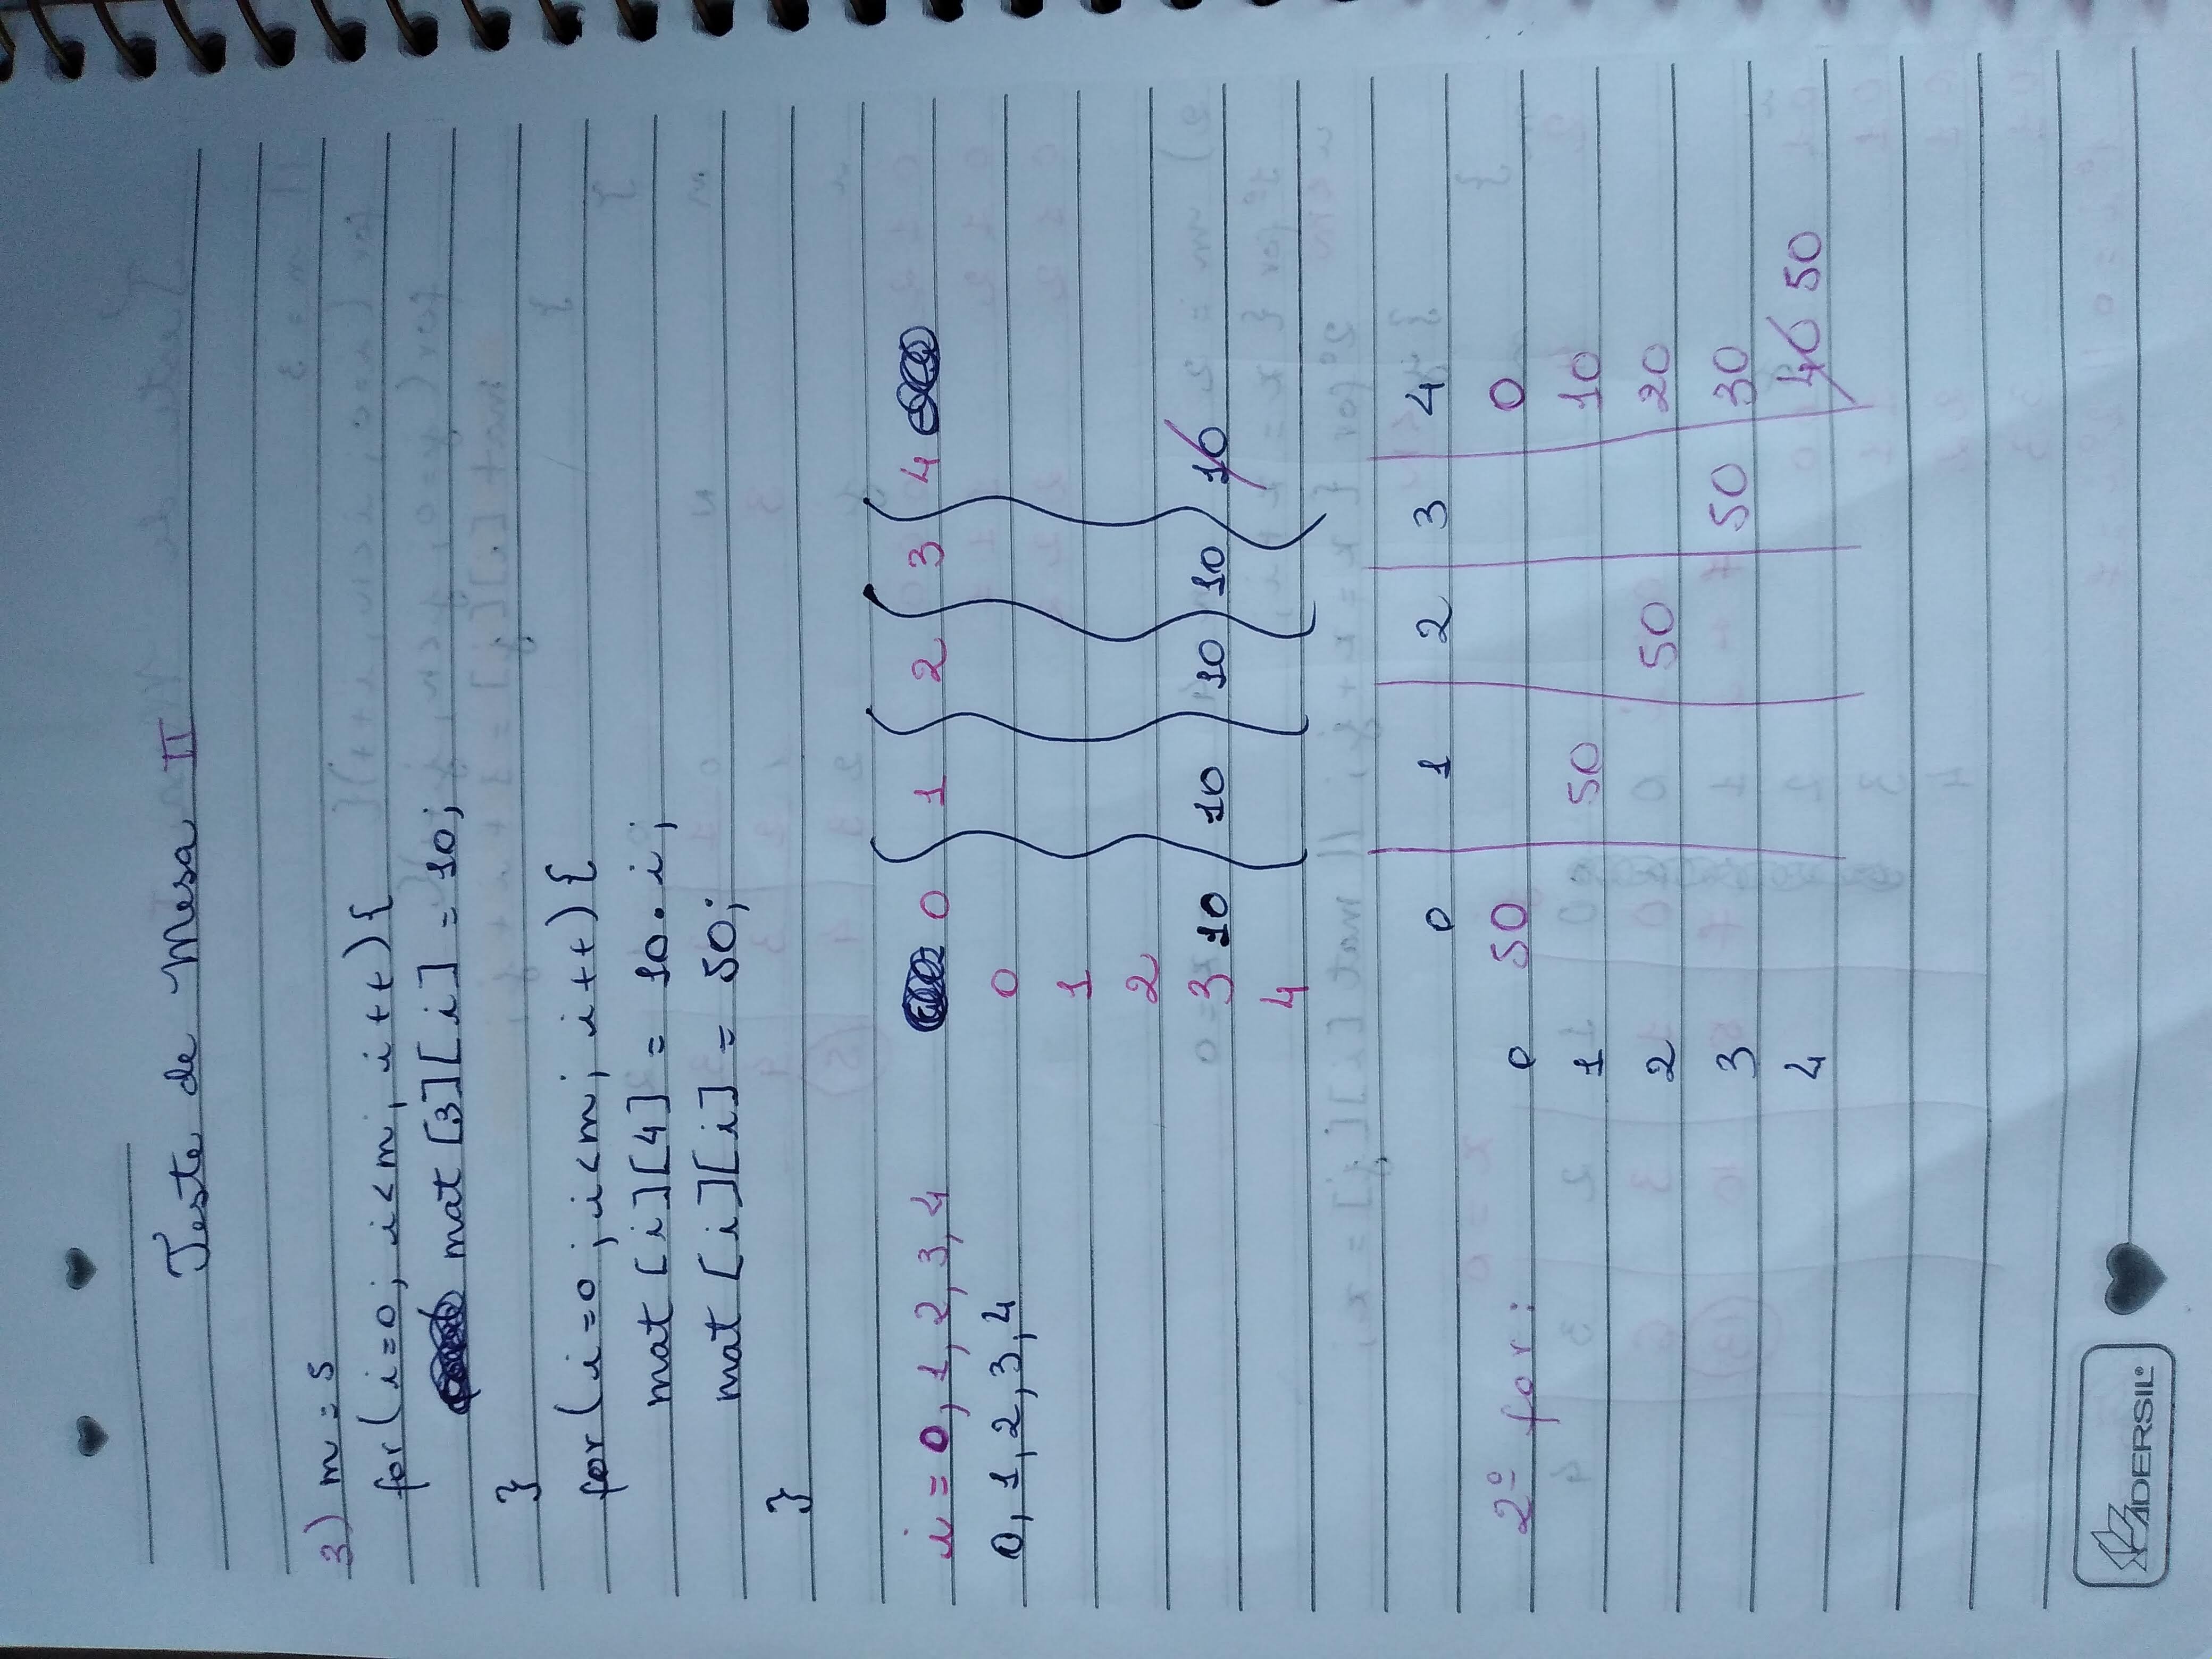 Teste de Mesa II
3) m = 5
for(i=0; i<m; i++){
mat [3][i] = 10;
}
for(i=0; i<m; i++){
mat [i][4] = 10.i;
mat [i][i] = 50;
}
i = 0, 1, 2, 3, 4 0 1 2 3 4
0, 1, 2, 3, 4 0
1
2
3 10 10 10 10 10
4
0 1 2 3 4
2º for: 0 50 0
1 50 10
2 50 20
3 50 30
4 40 50
ADERSIL